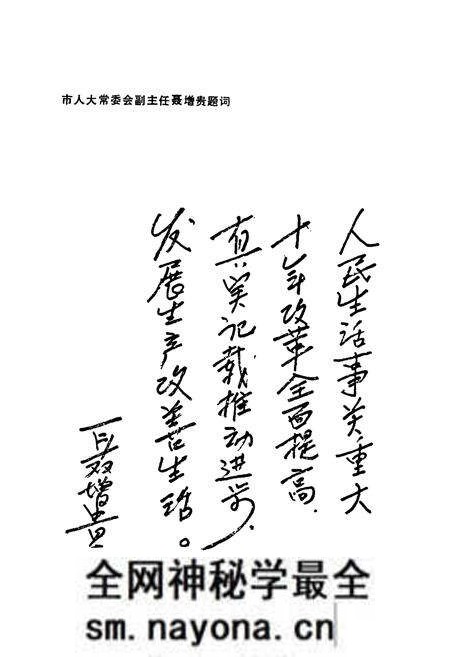 市人大常委会副主任聂增贵题词
人民生活事关重大
十年改革全面提高.
真实记载推动进步,
发展生产改善生活。
聂增贵
全网神秘学最全
sm.nayona.cn